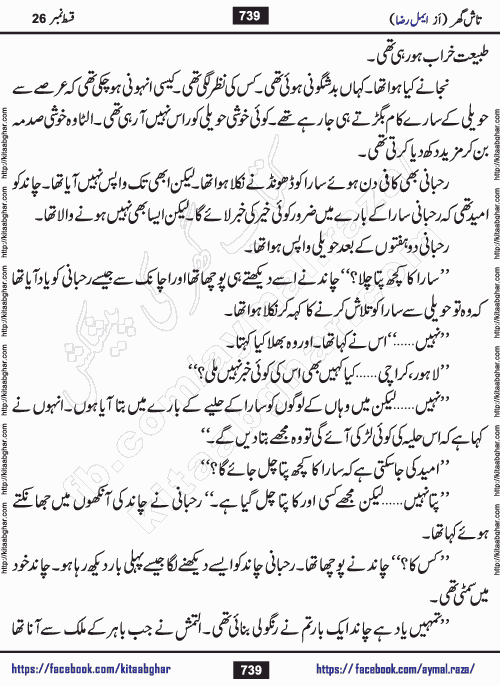 تاش گھر (از ایمل رضا) 739 قسط نمبر 26
طبیعت خراب ہو رہی تھی۔
نجانے کیا ہوا تھا۔ کہاں بدشگونی ہوئی تھی۔ کس کی نظر لگی تھی۔ کیسی انہونی ہو چکی تھی کہ عرصے سے
حویلی کے سارے کام بگڑتے ہی جا رہے تھے۔ کوئی خوشی حویلی کو راس نہیں آ رہی تھی۔ الٹا وہ خوشی صدمہ
بن کر مزید دکھ دیا کرتی تھی۔
رحبانی بھی کافی دن ہوئے سارا کو ڈھونڈنے نکلا ہوا تھا۔ لیکن ابھی تک واپس نہیں آیا تھا۔ چاند کو
امید تھی کہ رحبانی سارا کے بارے میں ضرور کوئی خیر کی خبر لائے گا۔ لیکن ایسا بھی نہیں ہونے والا تھا۔
رحبانی دو ہفتوں کے بعد حویلی واپس ہوا تھا۔
’’سارا کا کچھ پتا چلا؟‘‘ چاند نے اسے دیکھتے ہی پوچھا تھا اور اچانک سے جیسے رحبانی کو یاد آیا تھا
کہ وہ تو حویلی سے سارا کو تلاش کرنے کا کہہ کر نکلا ہوا تھا۔
’’نہیں......‘‘ اس نے کہا تھا۔ اور وہ بھلا کیا کہتا۔
’’لاہور، کراچی......کیا کہیں بھی اس کی کوئی خبر نہیں ملی؟‘‘
’’نہیں......لیکن میں وہاں کے لوگوں کو سارا کے حلیے کے بارے میں بتا آیا ہوں۔ انہوں نے
کہا ہے کہ اس حلیہ کی کوئی لڑکی آئے گی تو وہ مجھے بتا دیں گے۔‘‘
’’امید کی جا سکتی ہے کہ سارا کا کچھ پتا چل جائے گا؟‘‘
’’پتا نہیں......لیکن مجھے کسی اور کا پتا چل گیا ہے۔‘‘ رحبانی نے چاند کی آنکھوں میں جھانکتے
ہوئے کہا تھا۔
’’کس کا؟‘‘ چاند نے پوچھا تھا۔ رحبانی چاند کو ایسے دیکھنے لگا جیسے پہلی بار دیکھ رہا ہو۔ چاند خود
میں سمٹی تھی۔
’’تمہیں یاد ہے چاند ایک بار تم نے رنگولی بنائی تھی۔ التمش نے جب باہر کے ملک سے آنا تھا
https://facebook.com/kitaabghar 739 https://facebook.com/aymal.raza/
http://kitaabghar.com
fb.com/aymal.raza
kitaabghar.com